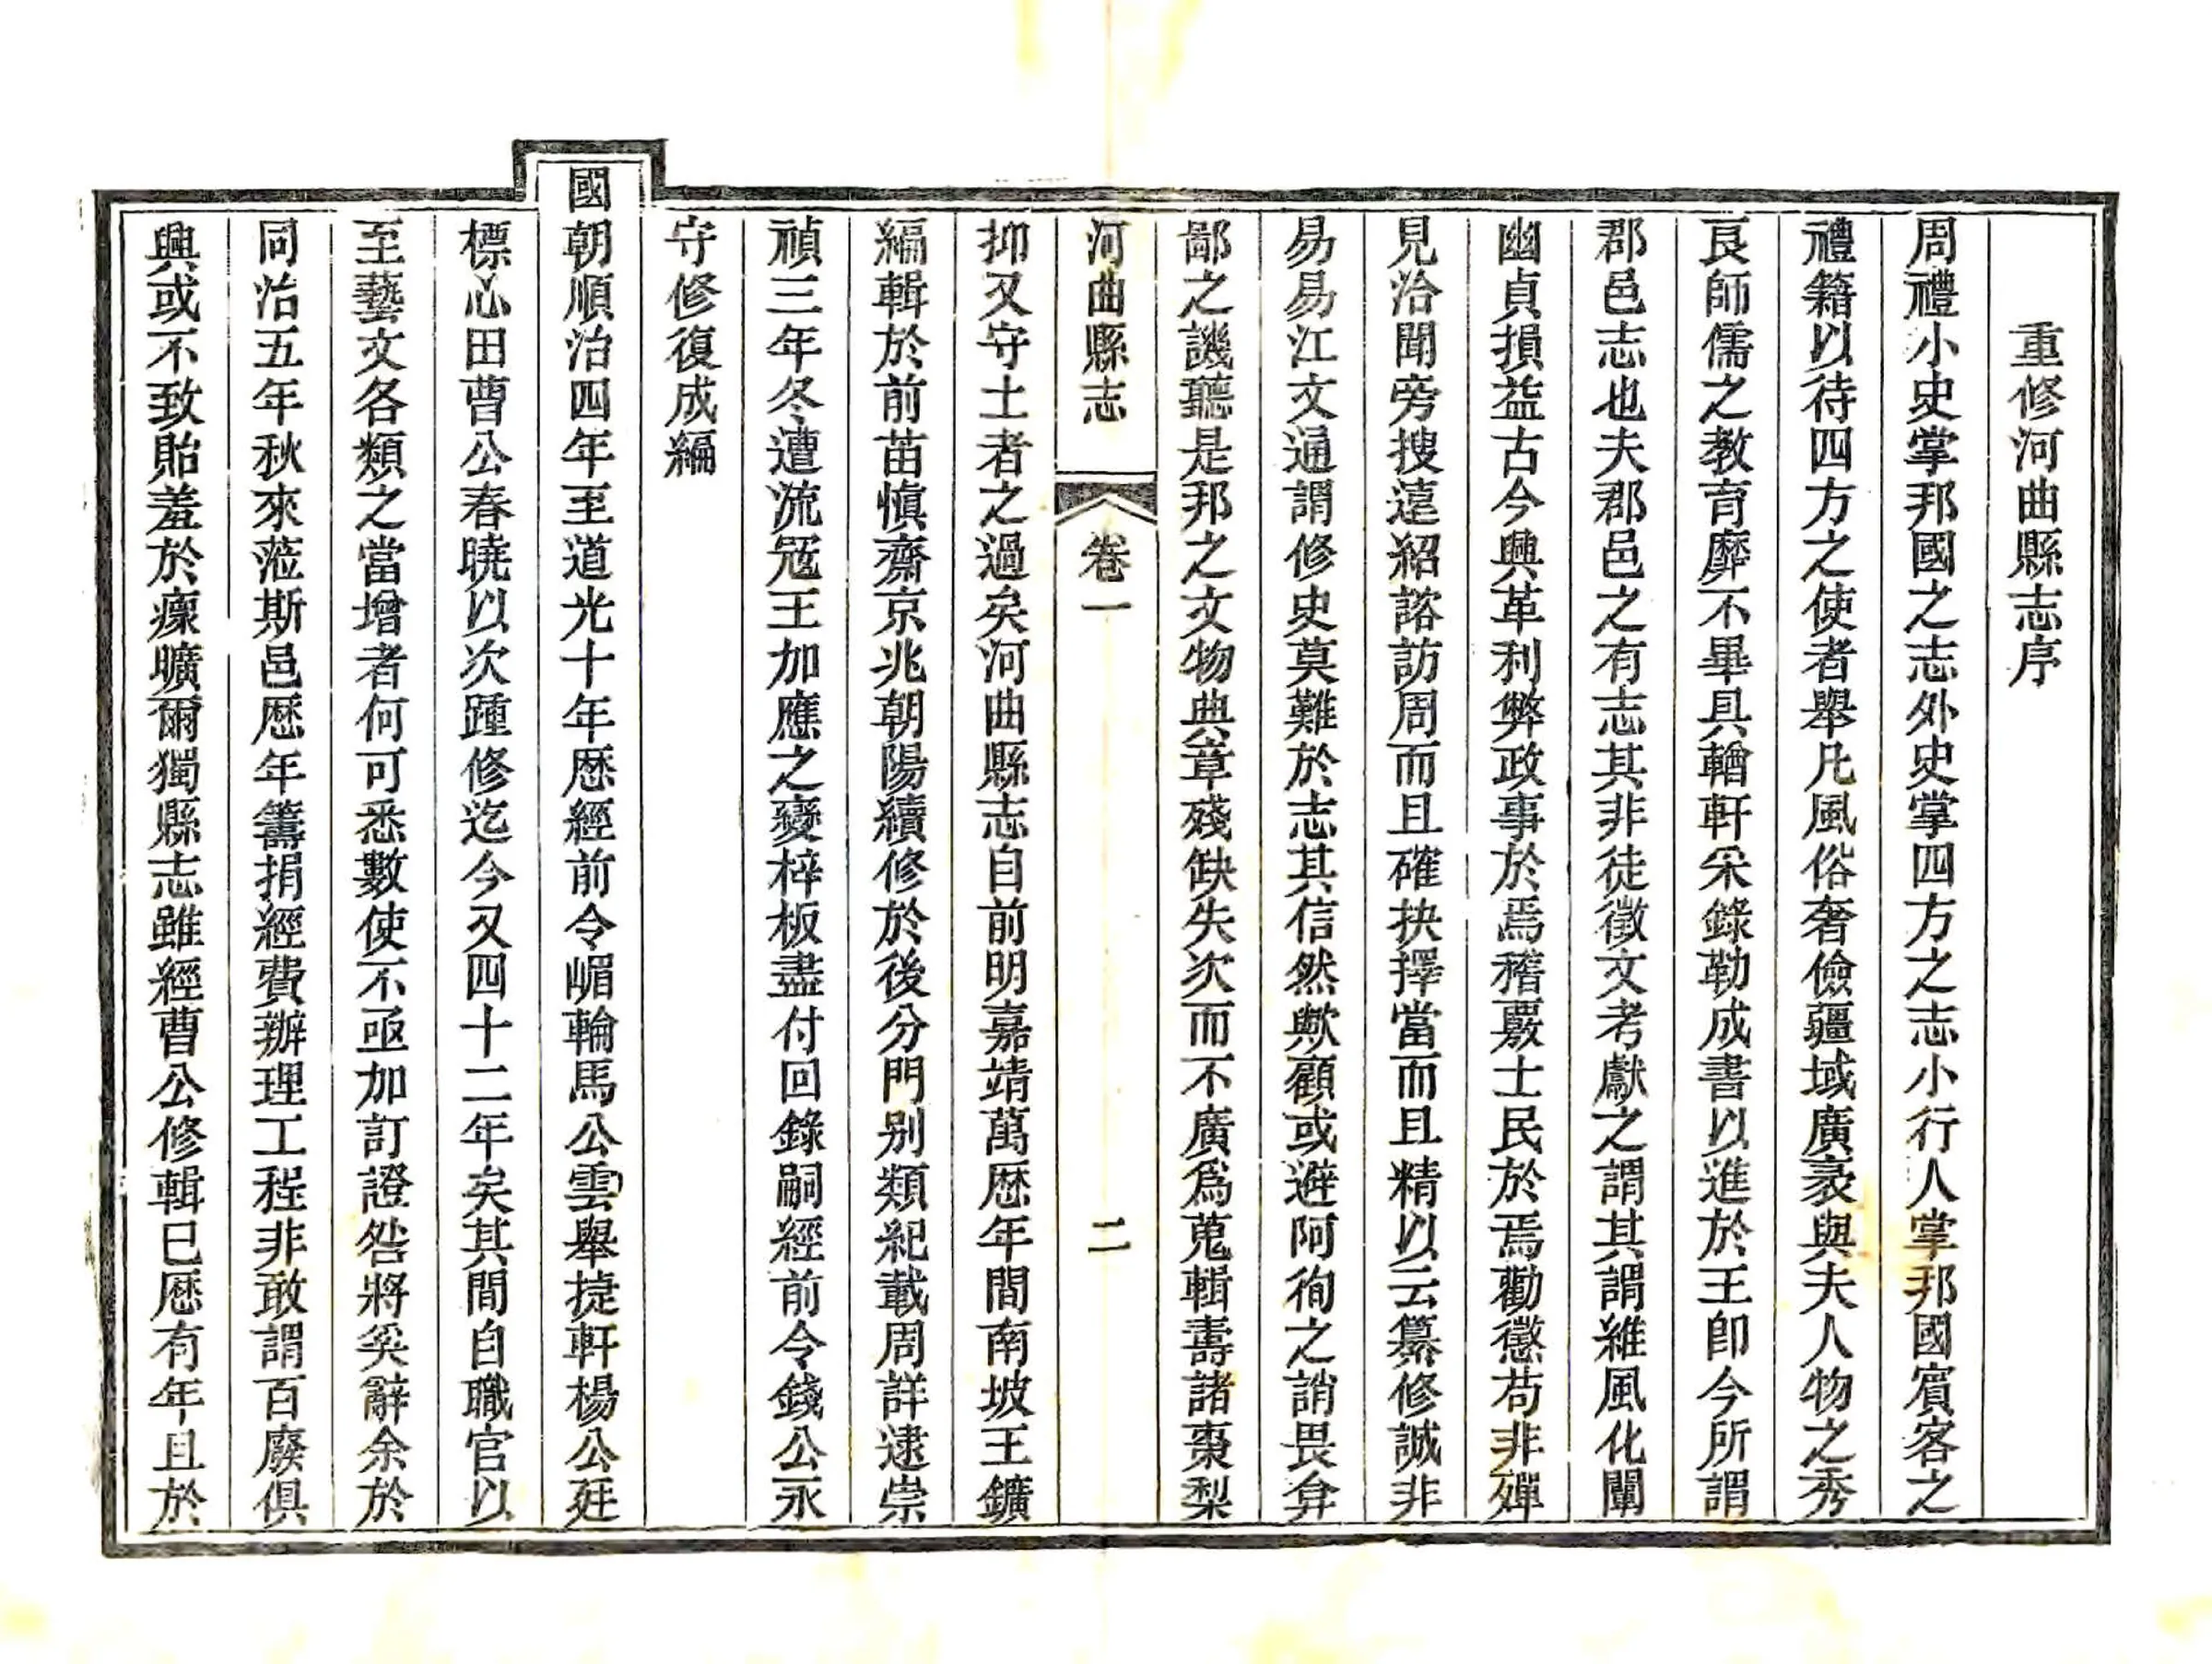 重修河曲縣志序
周禮小史掌邦國之志外史掌四方之志小行人掌邦國賓客之
禮籍以待四方之使者舉凡風俗奢儉疆域廣袤與夫人物之秀
良師儒之教育靡不畢具輶軒采錄勒成書以進於王卽今所謂
郡邑志也夫郡邑之有志其非徒徵文考獻之謂其謂維風化闡
幽貞損益古今興革利弊政事於焉稽覈士民於焉勸懲苟非殫
見洽聞旁搜遠紹諮訪周而且確抉擇當而且精以云纂修誠非
易易江文通謂修史莫難於志其信然歟顧或避阿徇之誚畏弇
鄙之譏聽是邦之文物典章殘缺失次而不廣爲蒐輯壽諸棗梨
河曲縣志 卷一 二
抑又守土者之過矣河曲縣志自前明嘉靖萬歴年間南坡王鑛
編輯於前苗愼齋京兆朝陽續修於後分門别類紀載周詳逮崇
禎三年冬遭流冦王加應之變梓板盡付回錄嗣經前令錢公永
守修復成編
國朝順治四年至道光十年歴經前令嵋輪馬公雲舉捷軒楊公廷
標心田曹公春曉以次踵修迄今又四十二年矣其間自職官以
至藝文各類之當增者何可悉數使不亟加訂證咎將奚辭余於
同治五年秋來蒞斯邑歴年籌捐經費辦理工程非敢謂百廢俱
興或不致貽羞於瘝曠爾獨縣志雖經曹公修輯已歴有年且於